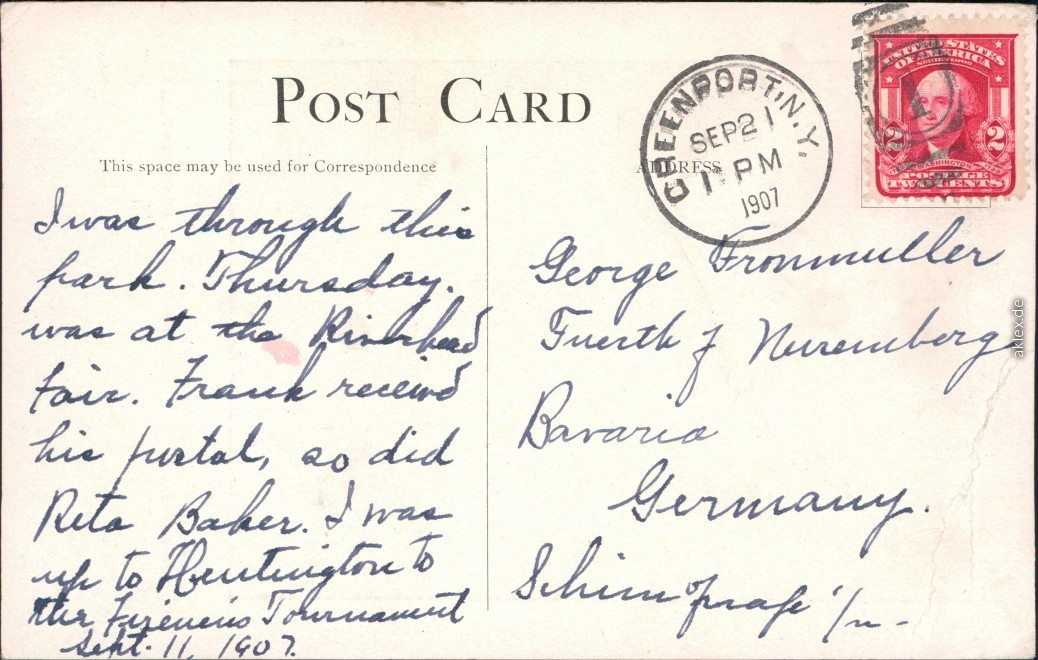 POST CARD
This space may be used for Correspondence
ADDRESS
GREENPORT, N.Y.
SEP 21
PM
1907
UNITED STATES
OF AMERICA
SERIES 1902
WASHINGTON
2 2
POSTAGE
TWO CENTS
I was through this
park. Thursday.
was at the Riverhead
Fair. Frank received
his postal, so did
Reta Baker. I was
up to Huntington to
the Firemens Tournament
Sept. 11, 1907.
George Fronmuller
Fuerth J Nuremberg
Bavaria
Germany.
aklex.de